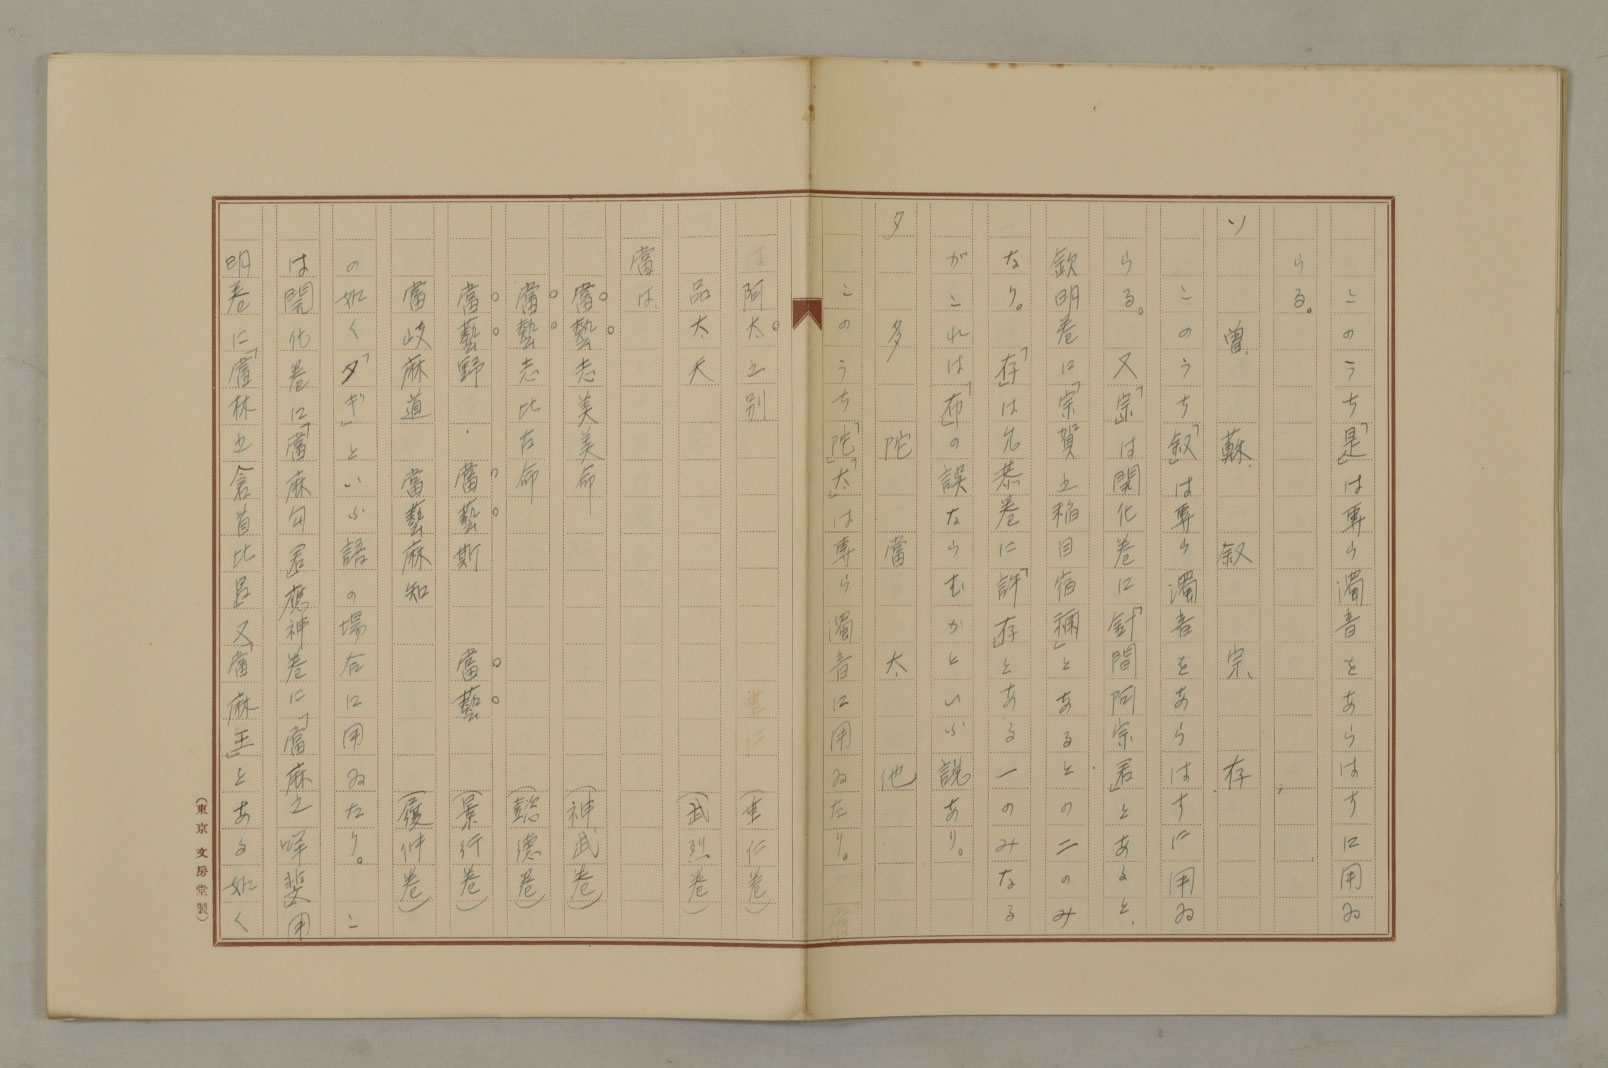 このうち「是」は専ら濁音をあらはすに用ゐ
らる。
ソ 曽、 蘇、 叙 宗、 存
このうち「叙」は専ら濁音をあらはすに用ゐ
らる。又「宗」は開化巻に「針間阿宗君」とあると、
欽明巻に「宗賀之稲目宿禰」とあるとの二のみ
なり。「存」は允恭巻に「許存」とある一のみなる
がこれは「布」の誤ならむかといふ説あり。
タ 多 陀 當 太 他
このうち「陀」「太」は専ら濁音に用ゐたり。
は阿太之別 (垂仁巻)
品太天 (武烈巻)
當は
當藝志美美命 (神武巻)
當藝志比古命 (懿徳巻)
當藝野 當藝斯 當藝 (景行巻)
當岐麻道 當藝麻知 (履仲巻)
の如く「タギ」といふ語の場合に用ゐたり。こ
は開化巻に「當麻勾君」應神巻に「當麻之咩斐」用
明巻に「當林之倉首比呂」又「當麻王」とある如く
(東京 文房堂製)